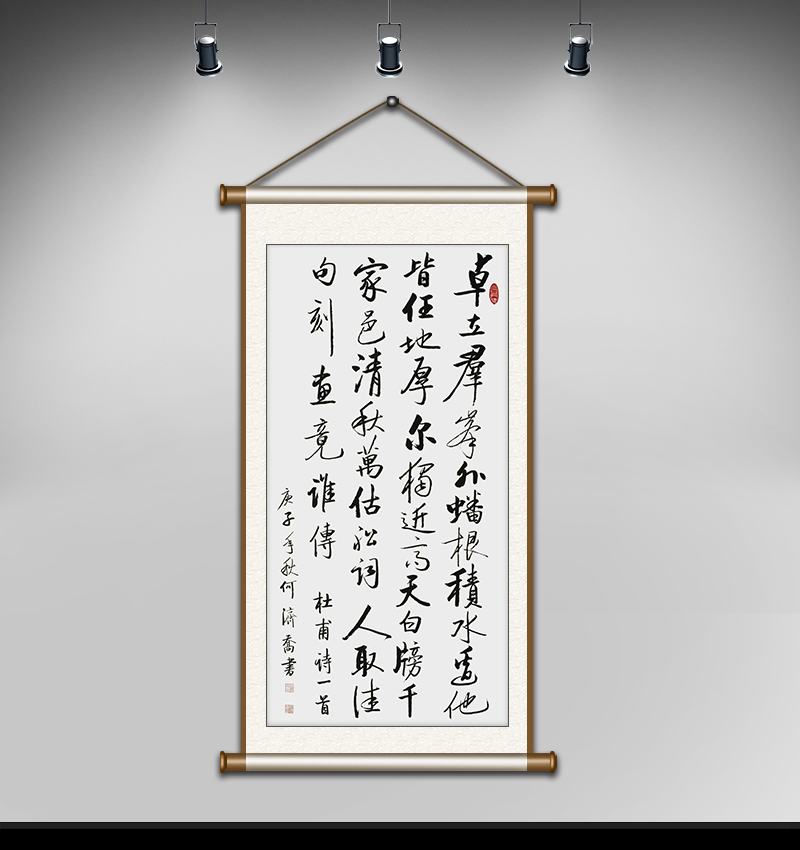 卓立羣峯外蟠根積水邊他
皆任地厚尔獨近高天白牓千
家邑清秋萬估船詞人取佳
句刻畫竟誰傳 杜甫詩一首
庚子年秋何濟喬書